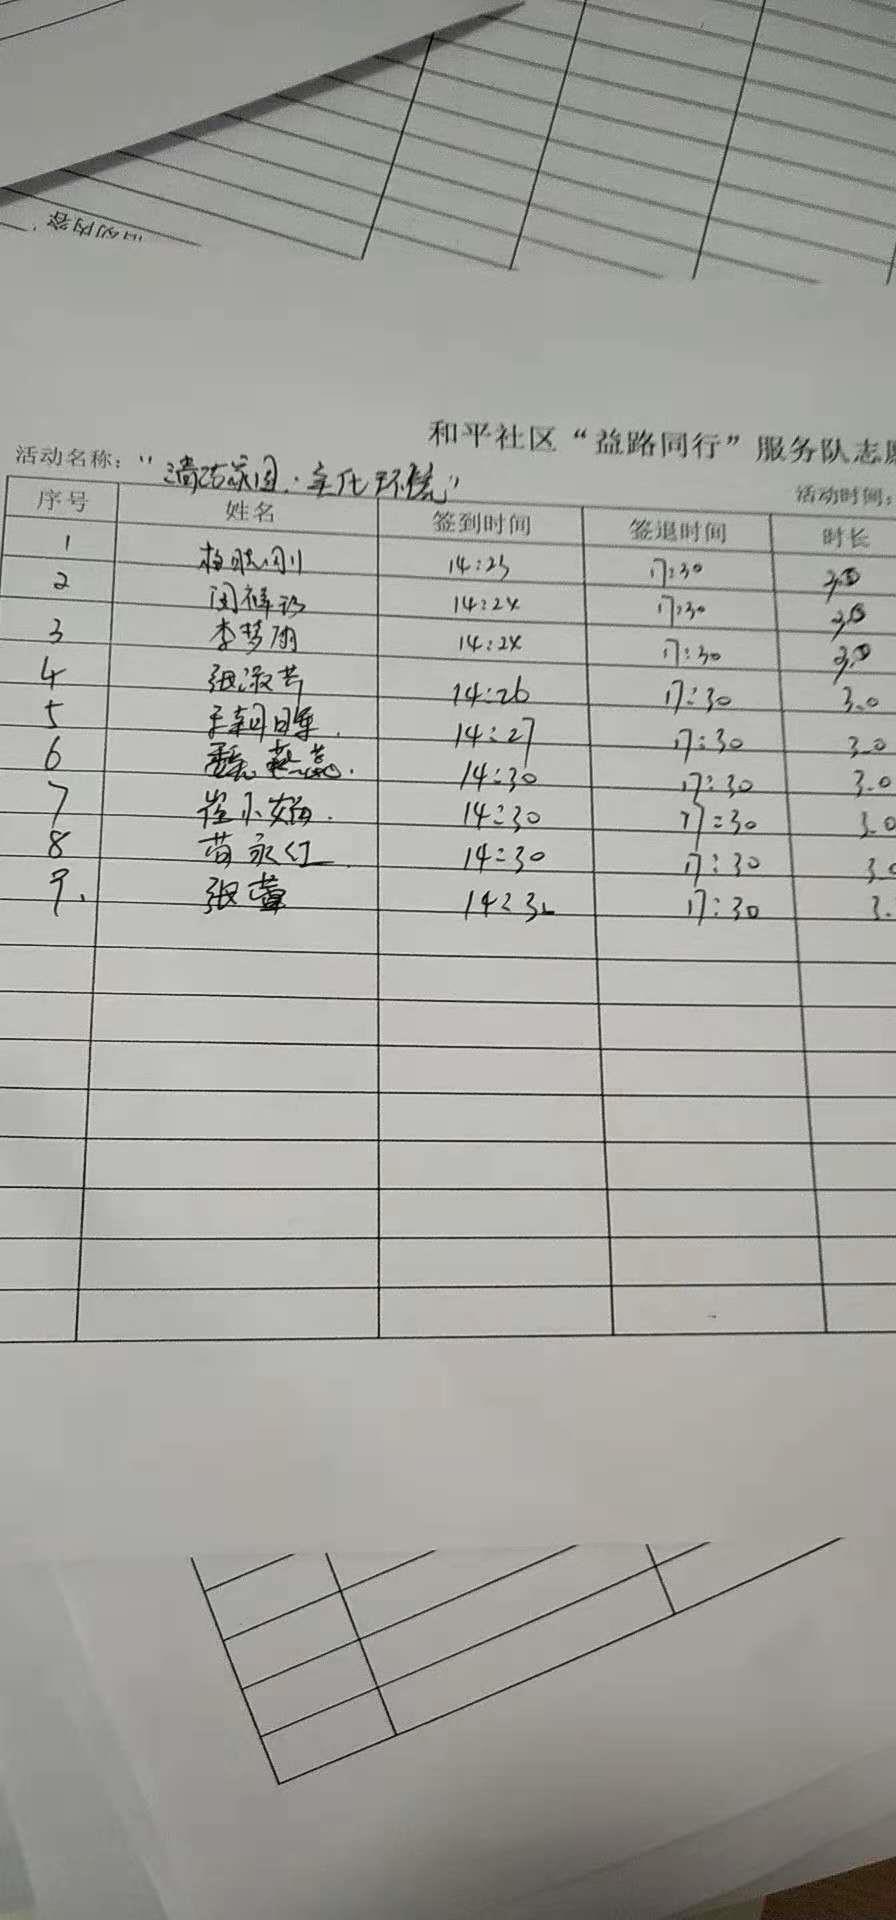 活动内容:
和平社区“益路同行”服务队志愿
活动名称：“清洁家园·美化环境”
活动时间：
序号 姓名 签到时间 签退时间 时长
1 14:25 17:30 3.0
2 14:24 17:30 3.0
3 李梦雨 14:24 17:30 3.0
4 张淑芳 14:26 17:30 3.0
5 14:27 17:30 3.0
6 14:30 17:30 3.0
7 崔小嫡 14:30 17:30 3.0
8 苗永红 14:30 17:30 3.0
9. 张萱 14:32 17:30 3.